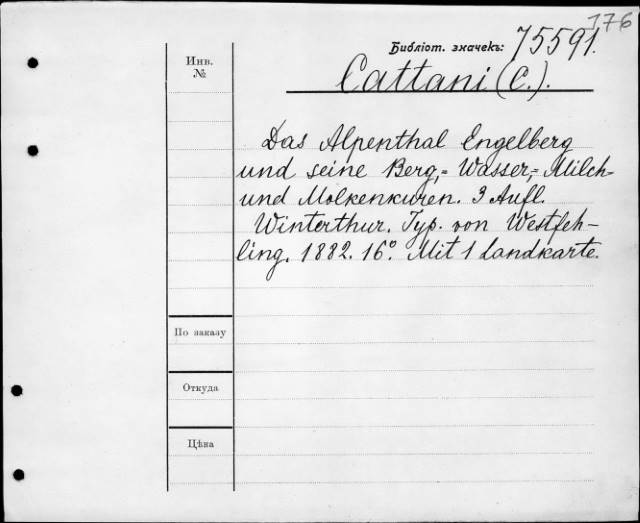 176
Библіот. значекъ: 75591.
Инв.
№
Cattani (C.).
Das Alpenthal Engelberg
und seine Berg,= Wasser,= Milch-
und Molkenkuren. 3 Aufl.
Winterthur. Typ. von Westfeh-
ling. 1882. 16° Mit 1 Landkarte.
По заказу
Откуда
Цѣна